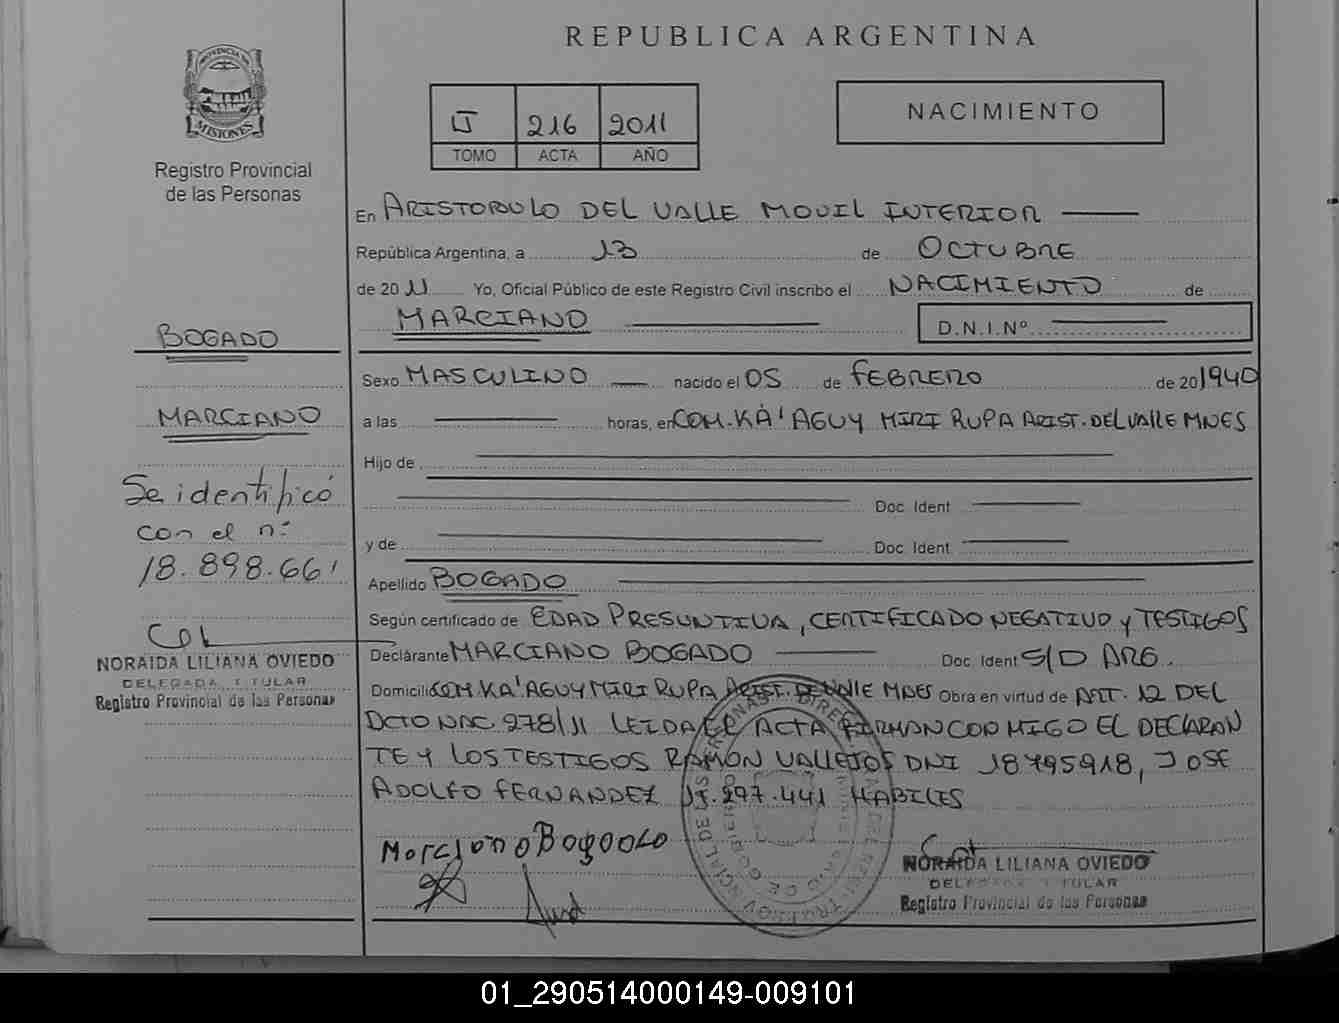 REPUBLICA ARGENTINA
PROVINCIA DE
MISIONES
Registro Provincial
de las Personas
216 2011
TOMO ACTA AÑO
NACIMIENTO
En ARISTOBULO DEL VALLE MOVIL INTERIOR
República Argentina, a 13 de OCTUBRE
de 2011 Yo, Oficial Público de este Registro Civil inscribo el NACIMIENTO de
MARCIANO D.N.I.Nº
BOGADO
MARCIANO
Se identificó
con el nº
18.898.661
NORAIDA LILIANA OVIEDO
DELEGADA TITULAR
Registro Provincial de las Personas
Sexo MASCULINO nacido el 05 de FEBRERO de 20 1940
a las horas, en COM. KA'AGUY MIRI RUPA ARIST. DEL VALLE MNES
Hijo de
Doc. Ident.
y de Doc. Ident.
Apellido BOGADO
Según certificado de EDAD PRESUNTIVA, CERTIFICADO NEGATIVO Y TESTIGOS
Declarante MARCIANO BOGADO Doc. Ident S/D ARG.
Domicilio COM. KA'AGUY MIRI RUPA ARIST. DEL VALLE MNES Obra en virtud de ART. 12 DEL
DCTO NAC 278/11 LEIDA EL ACTA FIRMAN CONMIGO EL DECLARAN
TE Y LOS TESTIGOS RAMON VALLEJOS DNI 18795918, JOSE
ADOLFO FERNANDEZ 297.441 HABILES
Marciano Bogado
NORAIDA LILIANA OVIEDO
DELEGADA TITULAR
Registro Provincial de las Personas
01_290514000149-009101